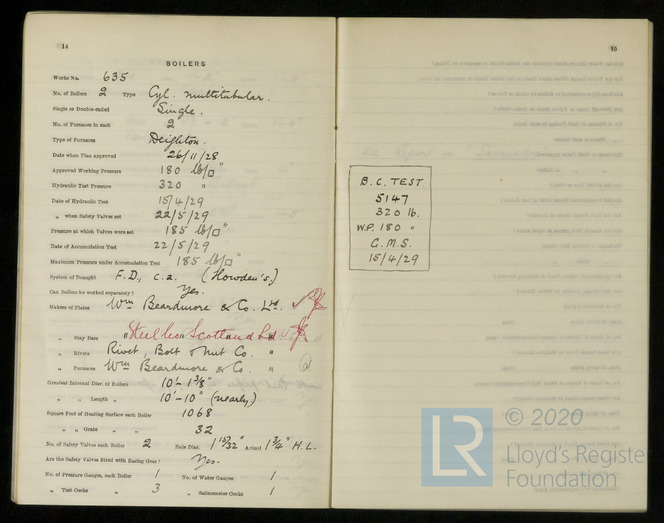 14
BOILERS
Works No. 635
No. of Boilers 2 Type Cyl. multitubular.
Single or Double-ended Single.
No. of Furnaces in each 2
Type of Furnaces Deighton.
Date when Plan approved 26/11/28
Approved Working Pressure 180 lb/□"
Hydraulic Test Pressure 320 "
Date of Hydraulic Test 15/4/29
" when Safety Valves set 22/5/29
Pressure at which Valves were set 185 lb/□"
Date of Accumulation Test 22/5/29
Maximum Pressure under Accumulation Test 185 lb/□"
System of Draught F.D., c.a. (Howden's.)
Can Boilers be worked separately? Yes.
Makers of Plates Wm Beardmore & Co. Ltd.
" Stay Bars "Steel Co" Scotland Ld
" Rivets Rivet, Bolt & Nut Co. "
" Furnaces Wm Beardmore & Co. "
Greatest Internal Diar. of Boilers 10'-1 3/8"
" " Length " 10'-10" (nearly)
Square Feet of Heating Surface each Boiler 1068
" " Grate " " 32
No. of Safety Valves each Boiler 2 Rule Diar. 1 15/32" Actual 1 3/4" H.L.
Are the Safety Valves fitted with Easing Gear? Yes.
No. of Pressure Gauges, each Boiler 1 No. of Water Gauges 1
" Test Cocks " 3 " Salinometer Cocks 1
15
B.C. TEST
5147
320 lb.
W.P. 180 "
G.M.S.
15/4/29
© 2020
LR
Lloyd's Register
Foundation